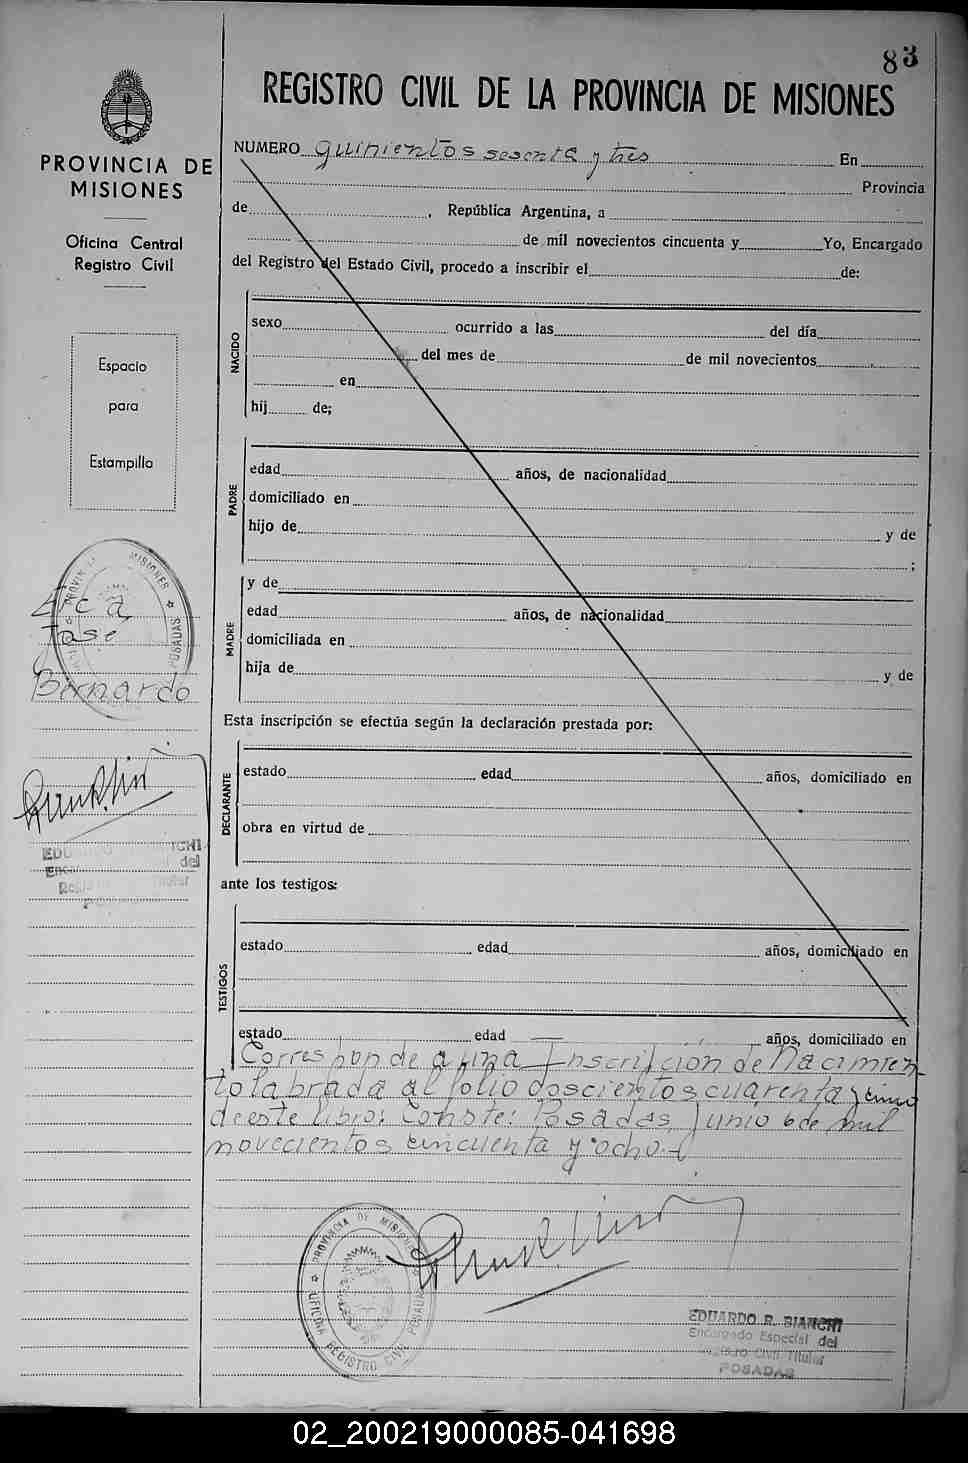 83
REGISTRO CIVIL DE LA PROVINCIA DE MISIONES
PROVINCIA DE
MISIONES
Oficina Central
Registro Civil
Espacio
para
Estampilla
PROVINCIA MISIONES POSADAS
José
Bernardo
EDUARDO BIANCHI
del
Titular
NUMERO quinientos sesenta y tres En
Provincia
de , República Argentina, a
de mil novecientos cincuenta y Yo, Encargado
del Registro del Estado Civil, procedo a inscribir el de:
NACIDO
sexo ocurrido a las del día
del mes de de mil novecientos
en
hij de;
PADRE
edad años, de nacionalidad
domiciliado en
hijo de y de
;
y de
MADRE
edad años, de nacionalidad
domiciliada en
hija de y de
Esta inscripción se efectúa según la declaración prestada por:
DECLARANTE
estado edad años, domiciliado en
obra en virtud de
ante los testigos:
TESTIGOS
estado edad años, domiciliado en
estado edad años, domiciliado en
Corresponde a una Inscripción de Nacimien-
to labrada al folio doscientos cuarenta y cinco
de este libro: Conste: Posadas, Junio 6 de mil
novecientos cincuenta y ocho.-
PROVINCIA DE MISIONES
OFICINA REGISTRO CIVIL POSADAS
EDUARDO R. BIANCHI
Encargado Especial del
Civil Titular
POSADAS
02_200219000085-041698